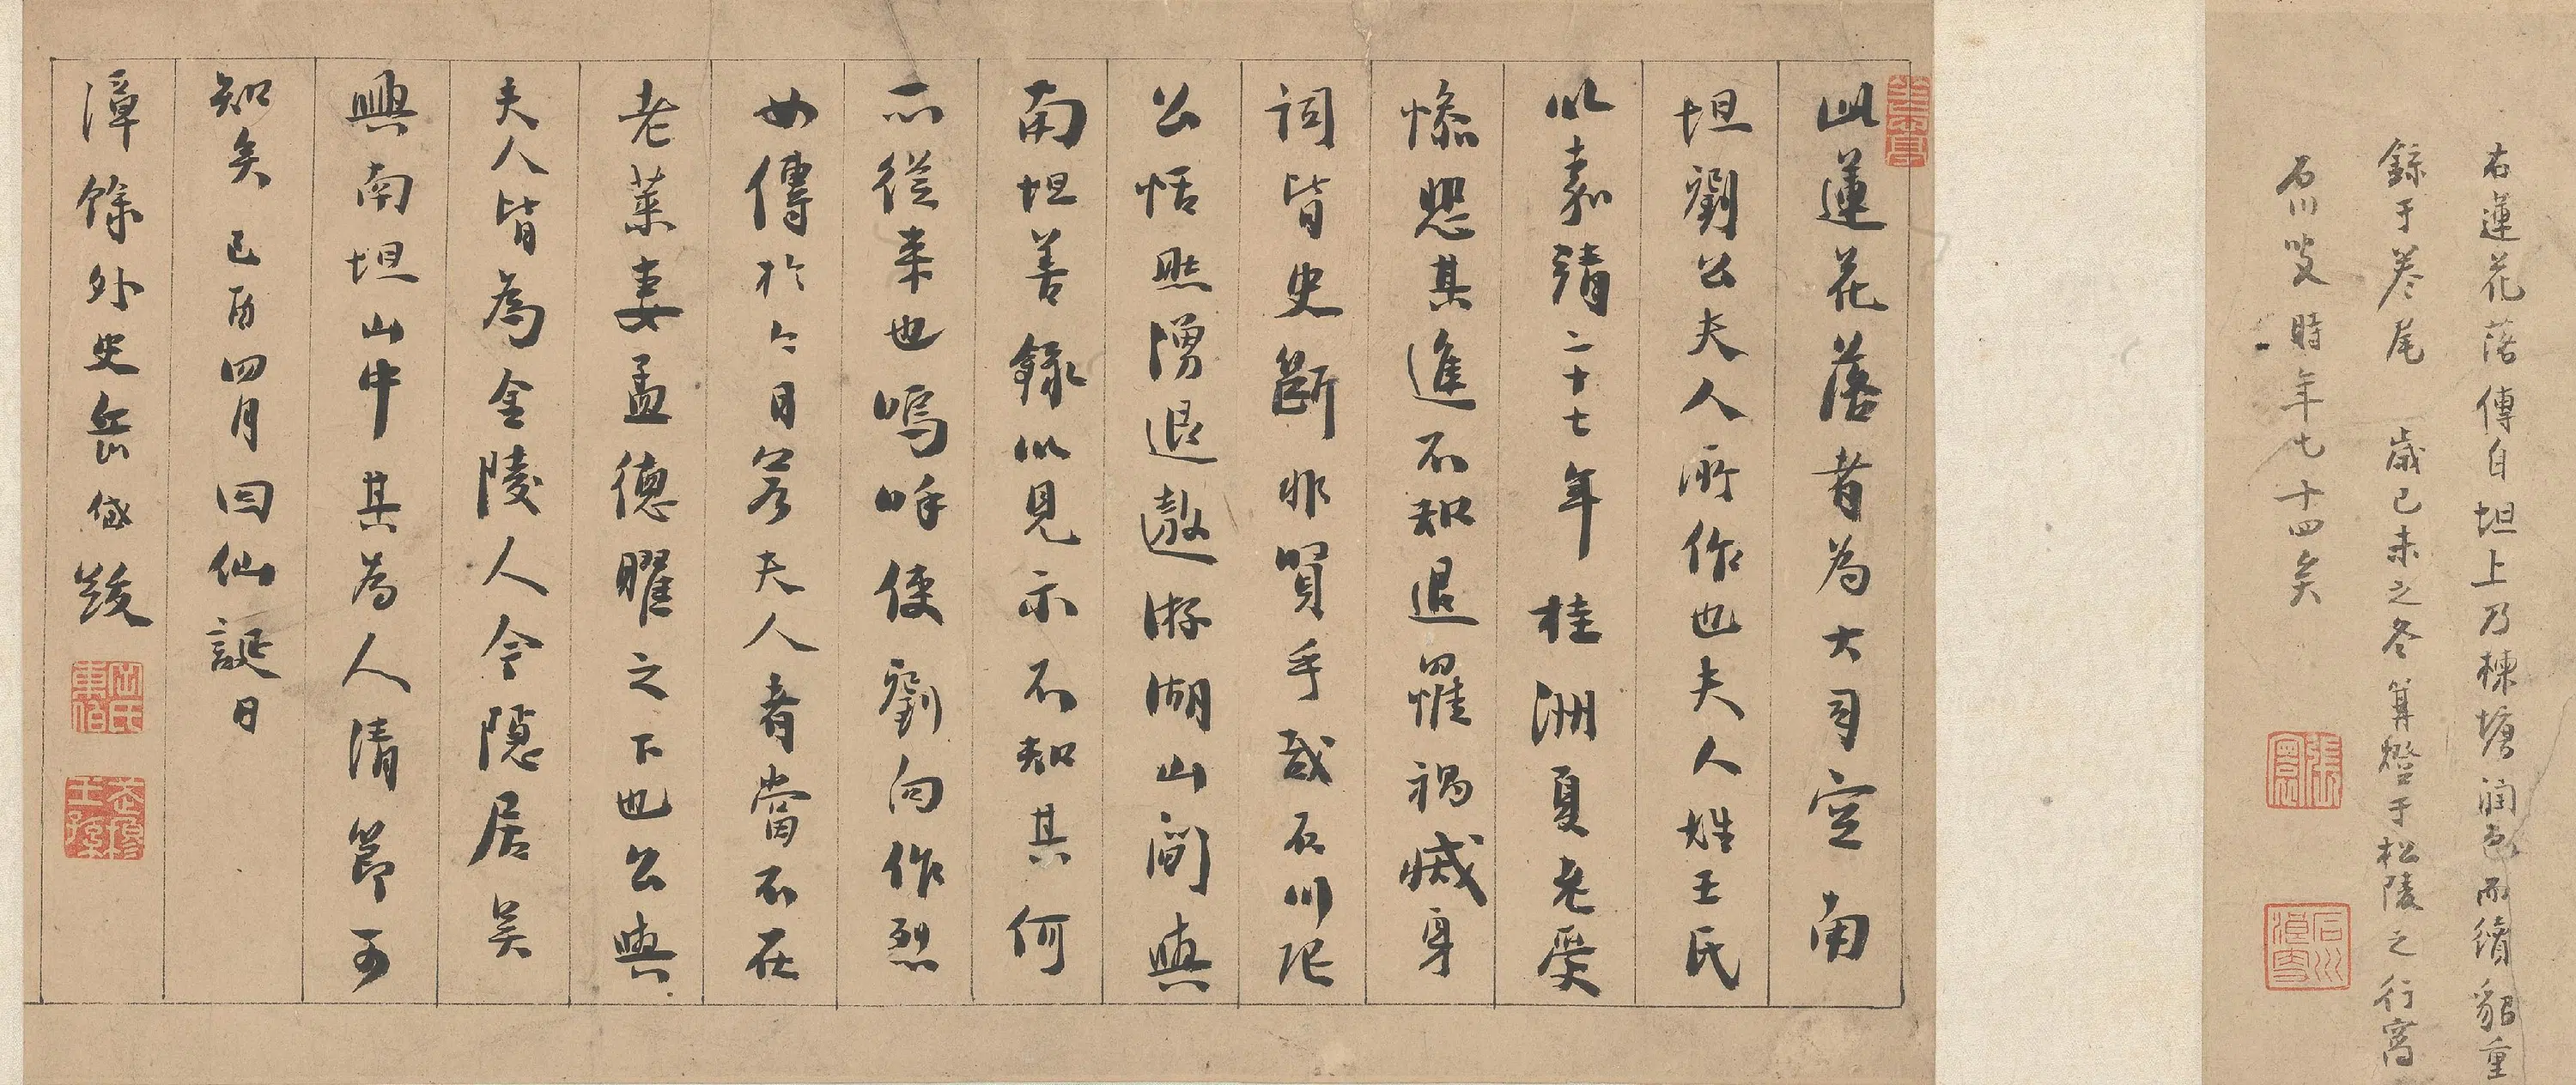 右蓮花落傳自坦上乃楝塘潤色而續貂重
錄于卷尾 歲己未之冬篝燈于松陵之行窩
石川叟時年七十四矣
張寰
石川
此蓮花落者為大司空南
坦劉公夫人所作也夫人姓王氏
以嘉靖二十七年桂洲夏老受
慘愍其進不知退罹禍滅身
詞皆史斷非買手哉石川張
公恬然湧退遨游湖山間與
南坦善錄以見示不知其何
所從来也嗚呼使劉向作烈
女傳於今日若夫人者當不在
老萊妻孟德曜之下也公與
夫人皆為金陵人今隱居吴
興南坦山中其為人清節可
知矣己酉四月回仙誕日
漳餘外史岳岱跋
岱氏東伯